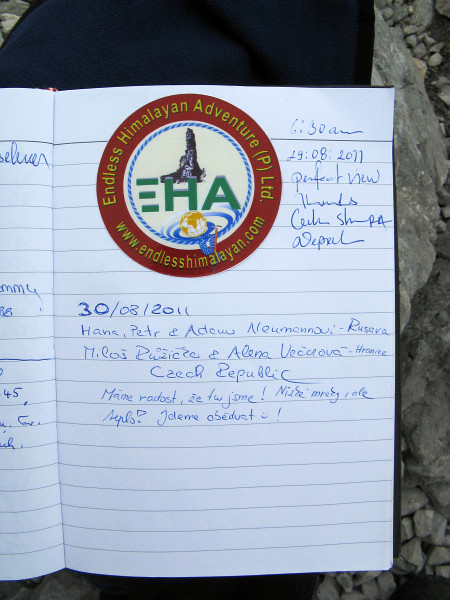 Endless Himalayan Adventure (P) Ltd.
EHA
www.endlesshimalayan.com
6:30 am
29:08:2011
perfect view
Thanks
Nepal
30/08/2011
Hana, Petr & Adam Neumannovi - Rusava
Miloš Růžička & Alena Večeřová - Hranice
Czech Republic
Máme radost, že tu jsme! Nízké mraky, ale
teplo! Jdeme obědvat !
45,